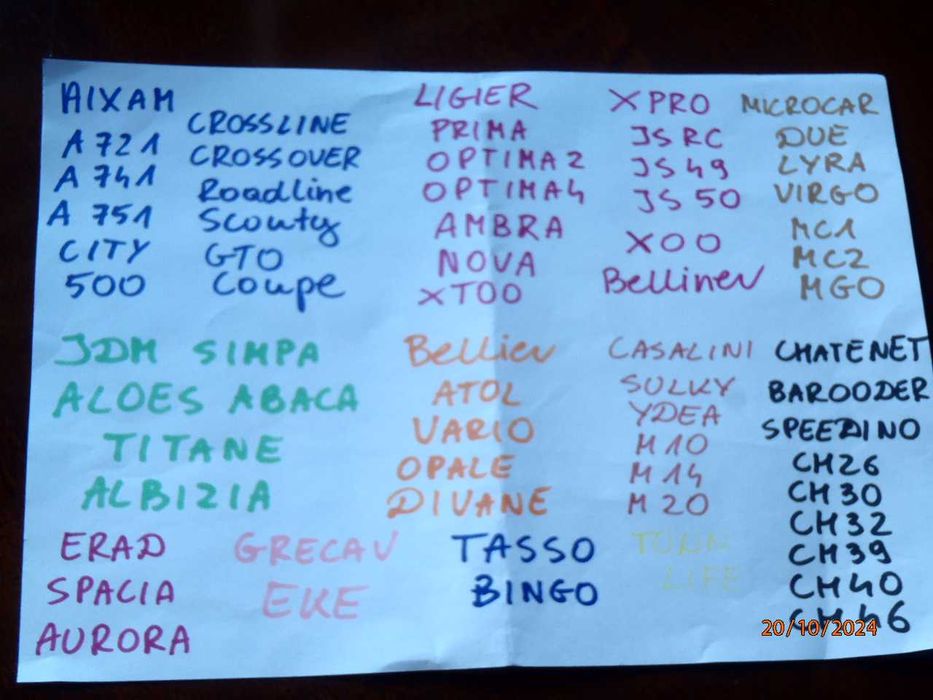 AIXAM
A 721
A 741
A 751
CITY
500
CROSSLINE
CROSSOVER
Roadline
Scouty
GTO
Coupe
LIGIER
PRIMA
OPTIMA2
OPTIMA4
AMBRA
NOVA
XTOO
XPRO
JSRC
JS49
JS50
XOO
Bellinev
MICROCAR
DUE
LYRA
VIRGO
MC1
MC2
MGO
JDM SIMPA
ALOES ABACA
TITANE
ALBIZIA
Belliev
ATOL
VARIO
OPALE
DIVANE
CASALINI
SULKY
YDEA
M10
M14
M20
CHATENET
BAROODER
SPEEDINO
CH26
CH30
CH32
CH39
CH40
CH46
ERAD
SPACIA
AURORA
GRECAV
EKE
TASSO
BINGO
LIFE
20/10/2024